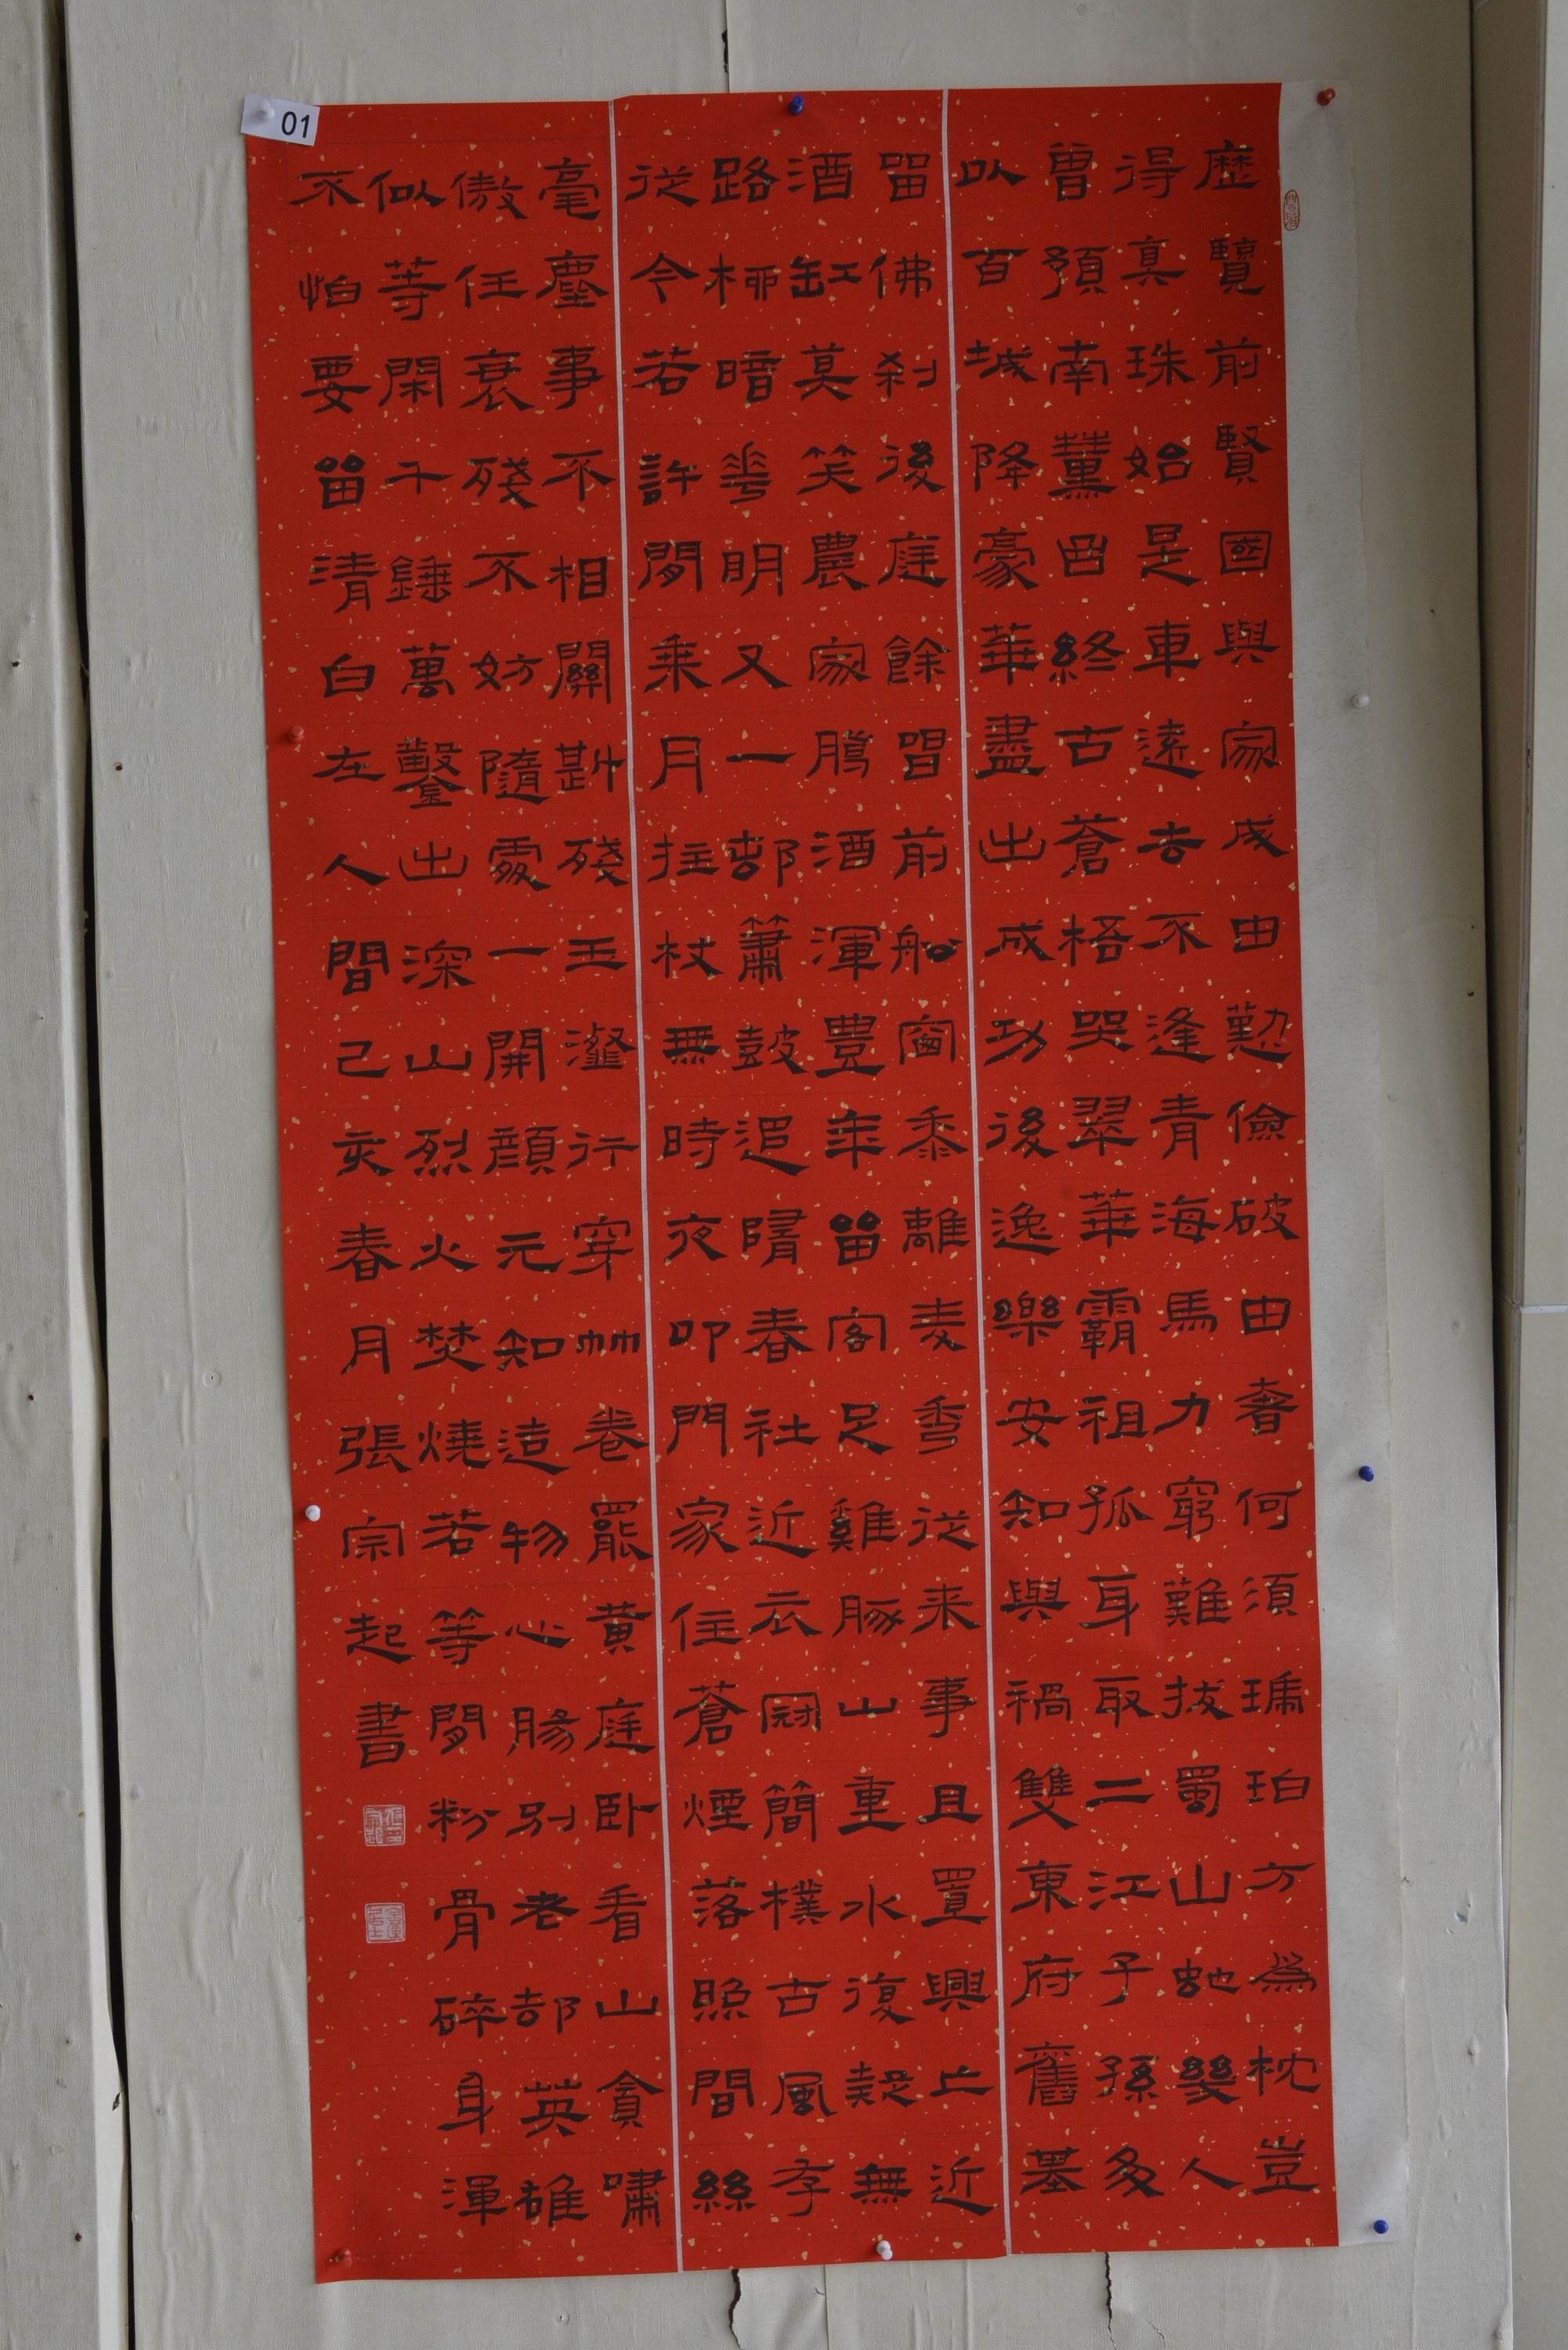 01
歷覽前賢國與家成由勤儉破由奢何須琥珀方為枕豈
得真珠始是車遠去不逢青海馬力窮難拔蜀山虵幾人
曾預南薰曲終古蒼梧哭翠華霸祖孤身取二江子孫多
以百城降豪華盡出成功後逸樂安知與禍雙東府舊基
留佛刹後庭餘唱前船窗黍離麦秀從来事且置興亡近
酒缸莫笑農家臘酒渾豐年留客足雞豚山重水復疑無
路柳暗華明又一邨簫鼓追隨春社近衣冠簡樸古風存
從今若許閑乘月拄杖無時夜叩門家住蒼煙落照間絲
毫塵事不相關斟殘玉瀣行穿竹卷罷黃庭卧看山貪嘯
傲任衰殘不妨隨處一開顏元知造物心腸別老却英雄
似等閑千錘萬鑿出深山烈火焚燒若等閑粉骨碎身渾
不怕要留清白在人間己亥春月張宗起書